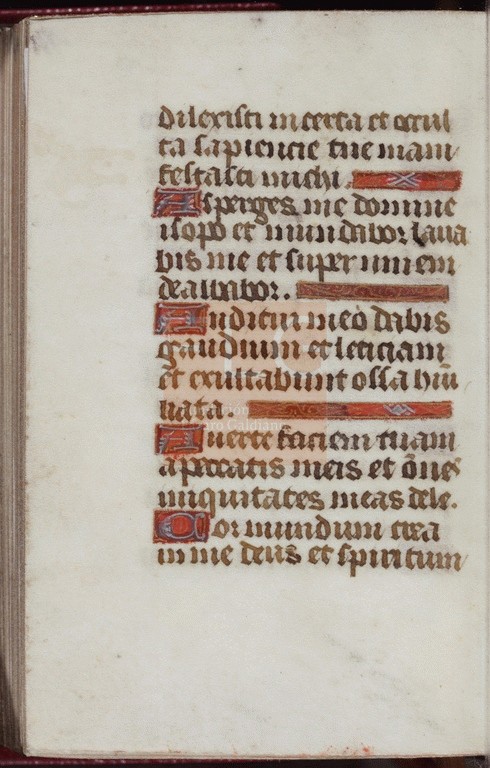 dilexisti incerta et occul
ta sapiencie tue mani
festasti michi.
Asperges me domine
isopo et mundabor lava
bis me et super nivem
dealbabor.
Auditui meo dabis
gaudium et leticiam
et exultabunt ossa hũi
liata.
Averte faciem tuam
a peccatis meis et õnes
iniquitates meas dele.
Cor mundum crea
in me deus et spiritum